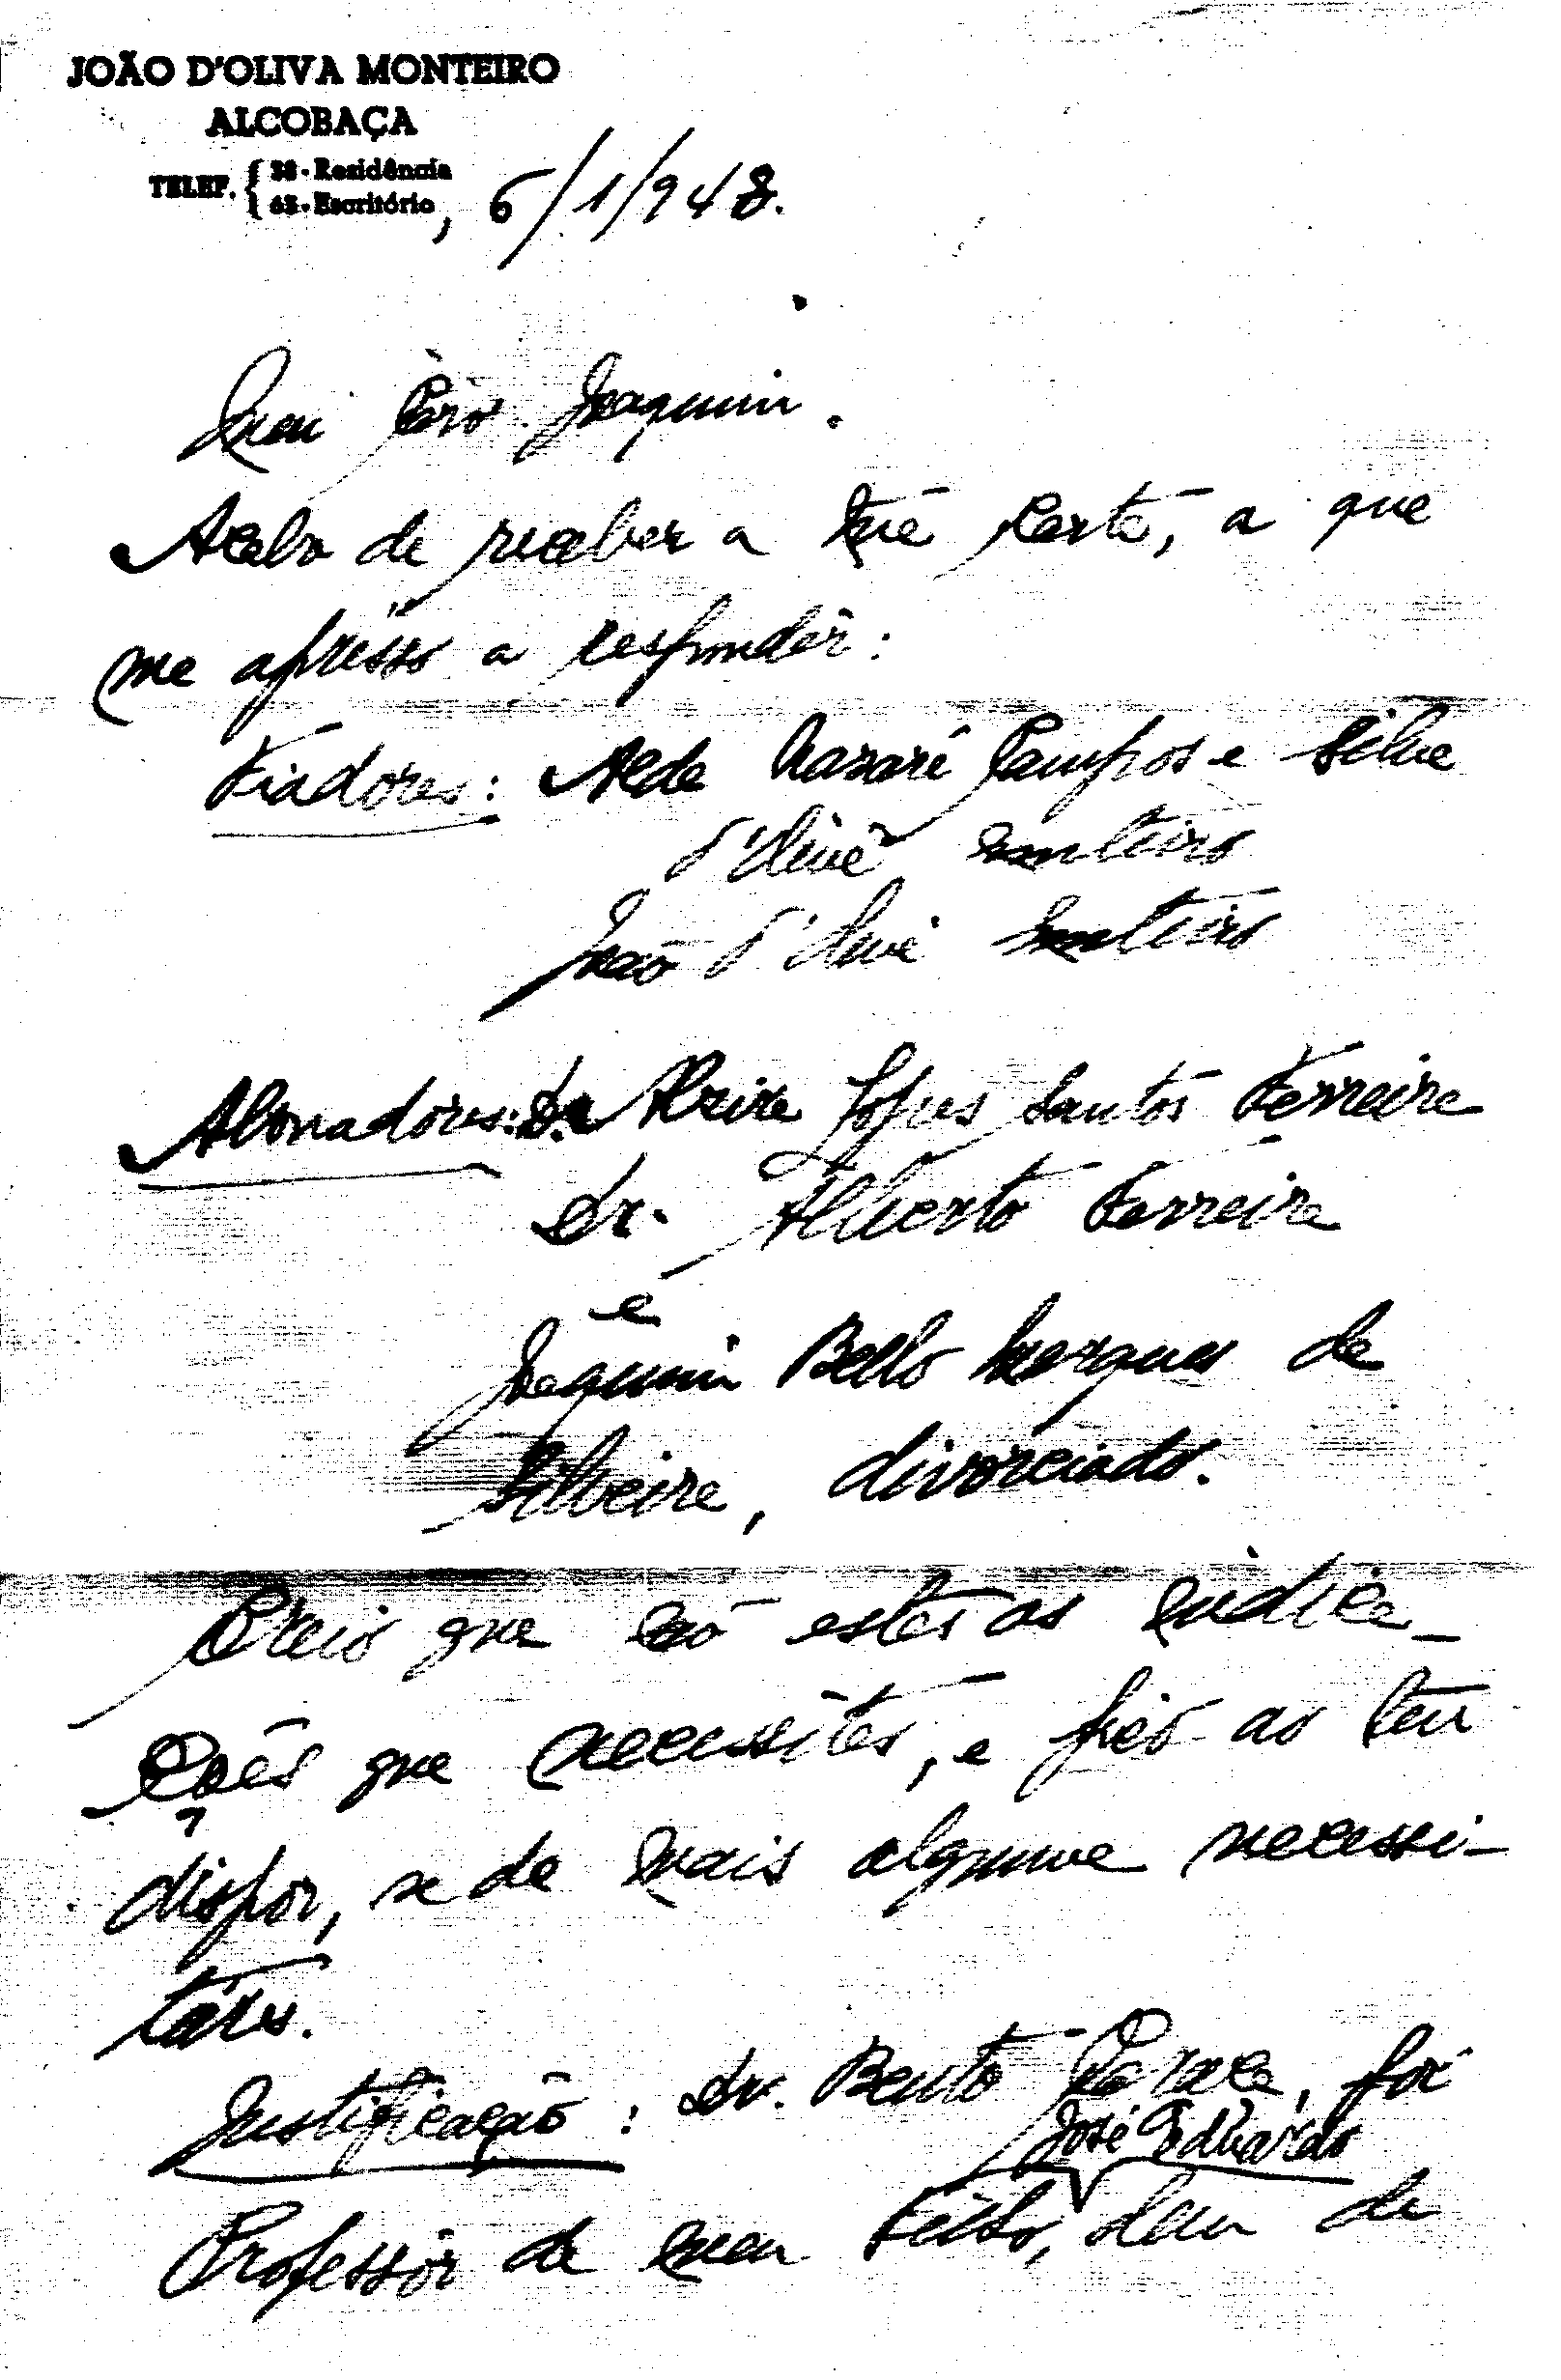 JOÃO D'OLIVA MONTEIRO
ALCOBAÇA
TELEF. { 38 - Residência
63 - Escritório, 6/1/948.
Meu Caro Joaquim.
Acabo de receber a tua carta, a que
me apresso a responder:
Fiadores: Alda Nazaré Campos e Silva
d'Oliva Monteiro
João d'Oliva Monteiro
Abonadores: D.a Alzira Lopes Santos Ferreira
Dr. Alberto Ferreira
e
Joaquim Bello Marques de
Silveira, divorciado.
Creio que são estas as indica-
ções que necessitas, e fico ao teu
dispor, se de mais alguma necessi-
táres.
Justificação: Dr. Bento Caraça, foi
José Eduardo
Professor de meu Filho, deu de